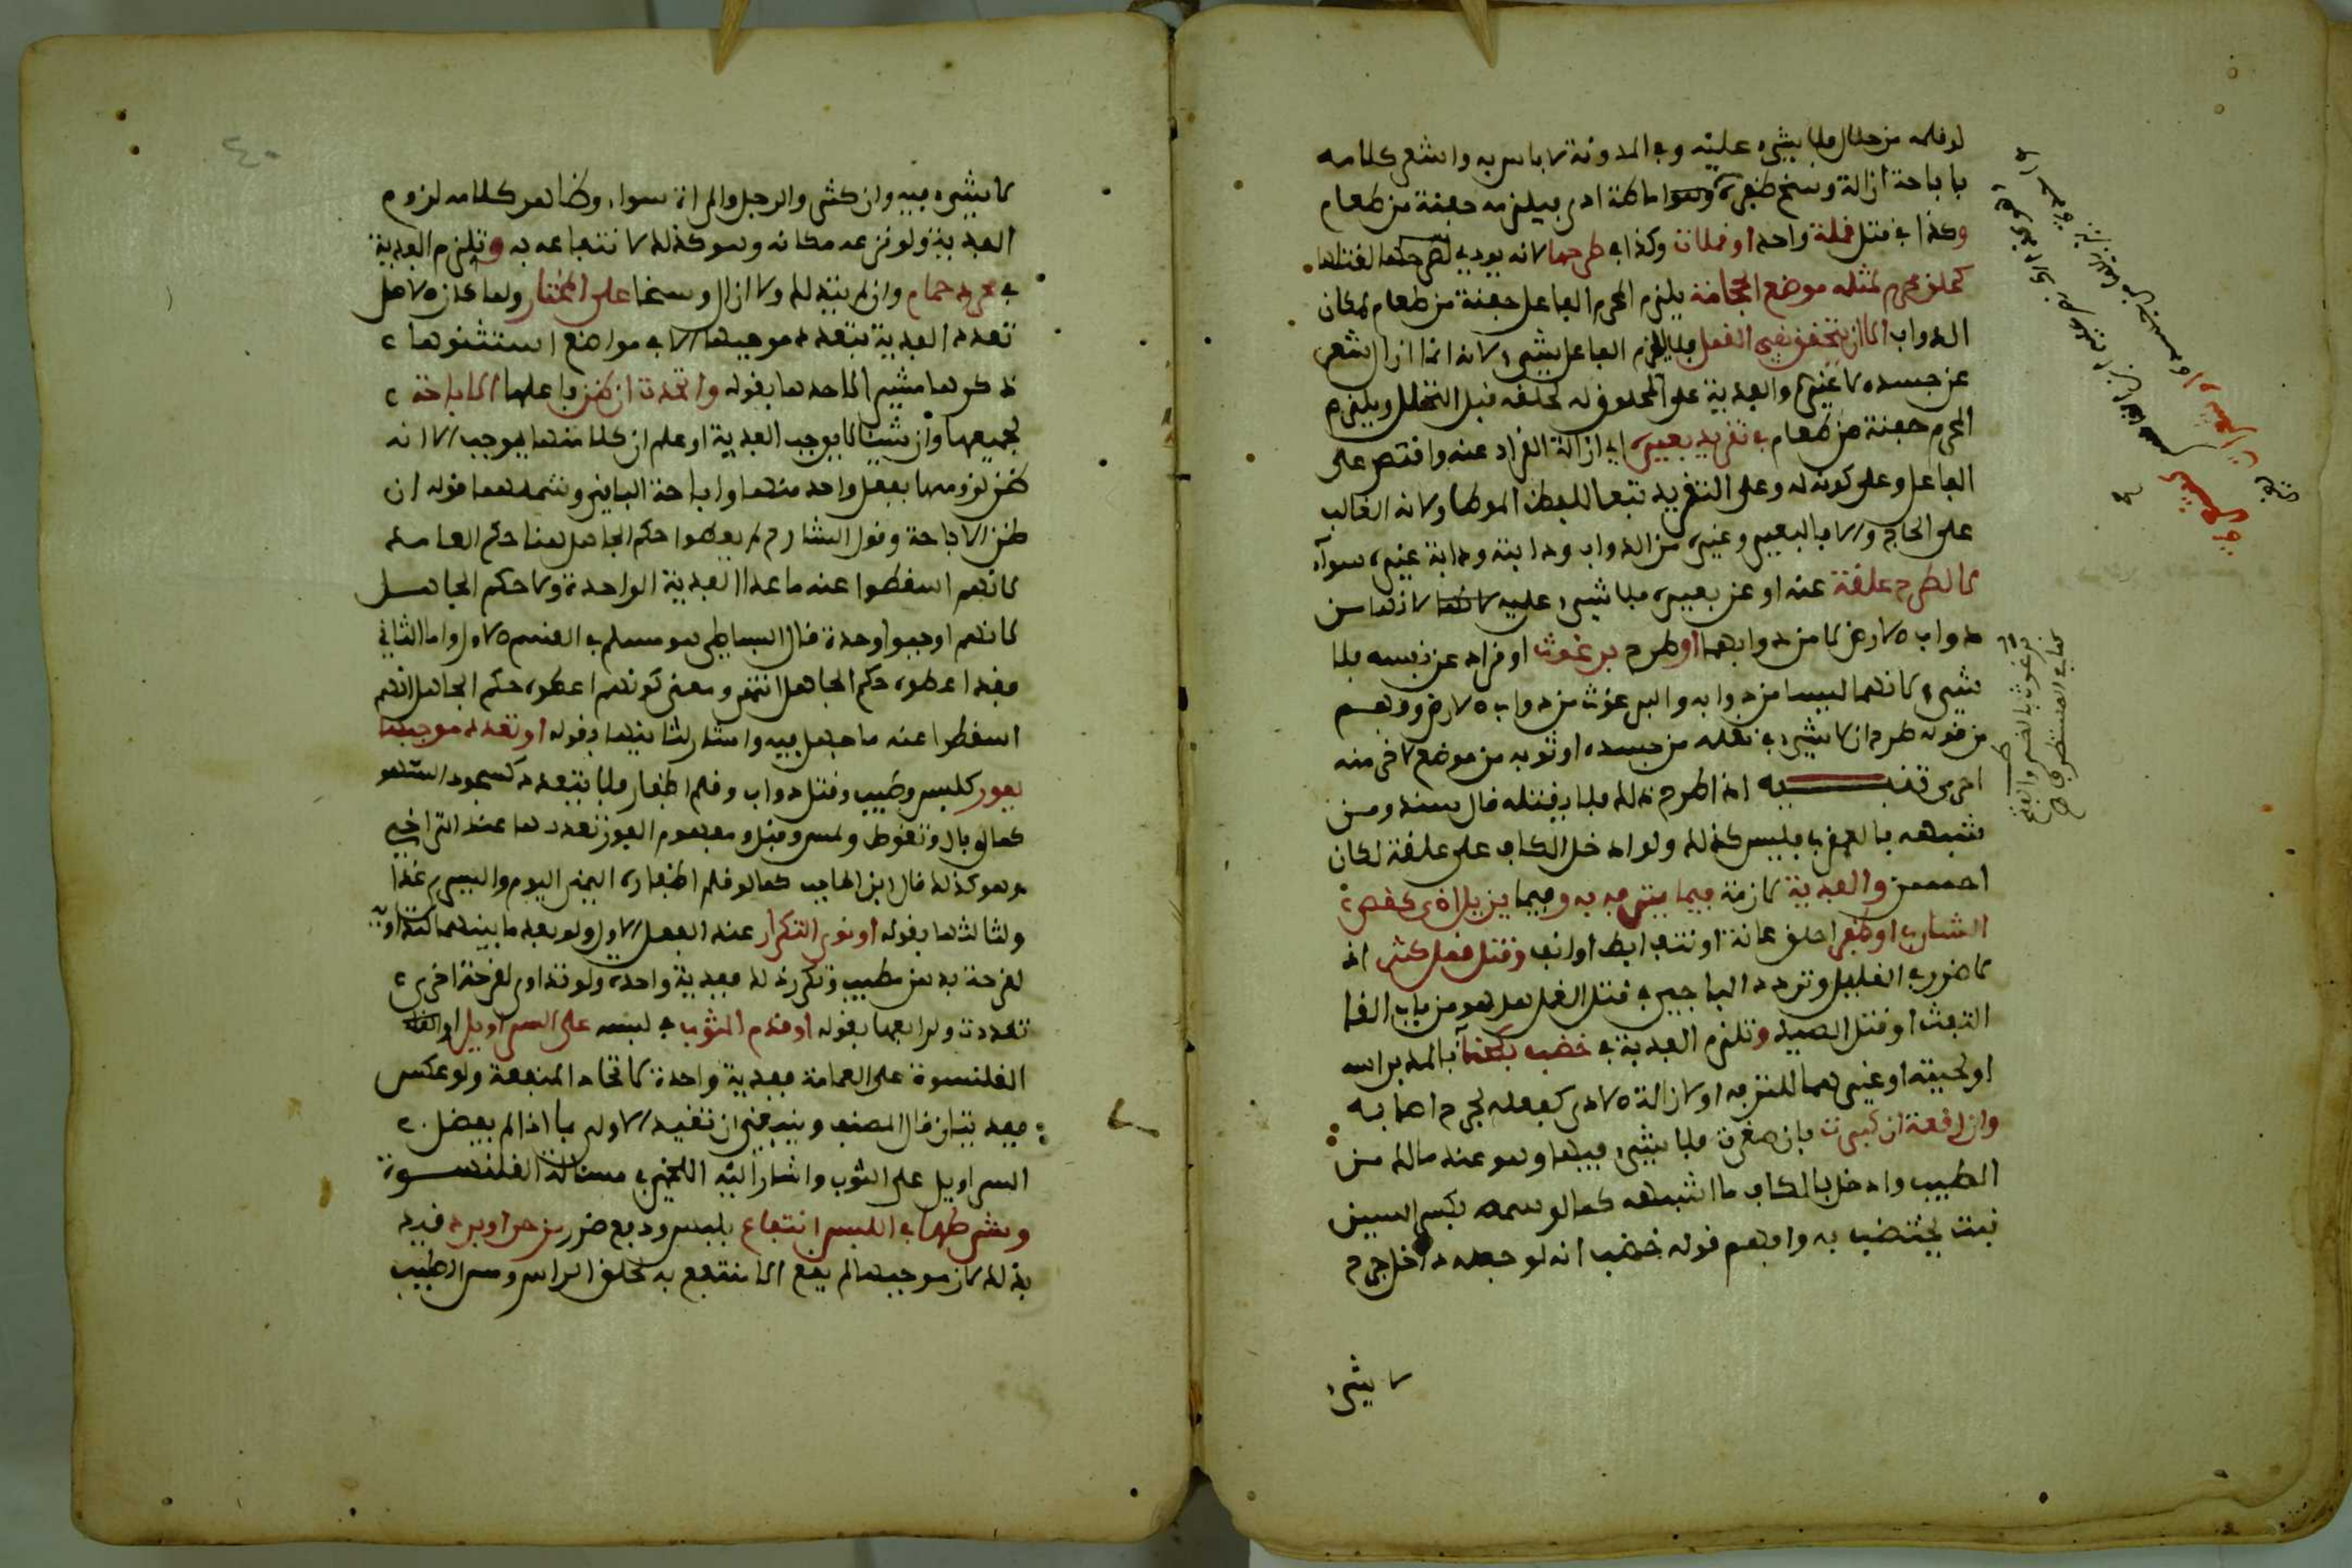 لو قلمه من حلال فلا شيء عليه وفي المدونة لا باس به واشعر كلامه
باباحة ازالة وسخ ظفره وهو اماطة اذى فيلزمه حفنة من طعام
وكذا في قتل قملة واحدة او قملات وكذا في طرحها لانه يودي لقتلها
كحلق محرم لمثله موضع الحجامة يلزم المحرم الفاعل حفنة من طعام لمكان
الدواب الا ان يتحقق نفي القمل فلا يلزم الفاعل شيء لانه انما ازال شعر
عن جسده لا غير والفدية على المحلوق له لحلقه قبل التحلل ويلزم
المحرم حفنة من طعام في تقريد بعيره اي ازالة القراد عنه واقتصر على
الفاعل وعلى كونه له وعلى التقريد تبعا للفظ الموطا ولانه الغالب
على الحاج والا فالبعير وغيره من الدواب ودابته ودابة غيره سواء
لا لطرح علقة عنه او عن بعيره فلا شيء عليه لانها من
دواب الارض لا من دوابهما او طرح برغوث او قراد عن نفسه فلا
شيء لانهما ليسا من دوابه والبرغوث من دواب الارض وفهم
من قوله طرح ان لا شيء في نقله من جسده او ثوبه من موضع لاخر منه
احرى تنبيه اذا طرح ذلك فلا يقتله قال سند ومن
شبهه بالعقرب فليس كذلك ولو ادخل الكاف على علقة لكان
احسن والفدية لازمة فيما يترفه به وفيما يزيل اذى كقص
الشارب او ظفر احلق عانة او نتف ابط او انف وقتل قمل كثر اذ
لا ضرر في القليل وتردد الباجي في قتل القمل هل هو من باب القا
التفث او قتل الصيد وتلزم الفدية في خضب بحناء بالمد براسه
او لحيته او غيرهما للترفه او لازالة الاذى كفعله لجرح اصابه
وان رقعة ان كبرت فان صغرت فلا شيء فيها وهو عند مالك من
الطيب وادخل بالكاف ما اشبهه كما لو وسمه بكسر السين
نبت يختضب به وافهم قوله خضب انه لو جعله داخل جرح
لا شيء
برغوث بالضم والفتح
لا شيء فيه وان كثر والرجل والمراة سواء وظاهر كلامه لزوم
الفدية ولو نزعه مكانه وهو كذلك لانتفاعه به وتلزم الفدية
في مجرد حمام وان لم يتدلك ولا ازال وسخا على المختار ولما كان الاصل
تعدد الفدية بتعدد موجبها الا في مواضع استثنوها
ذكرها مشيرا لاحدها بقوله واتحدت ان ظن فاعلها الاباحة
لجميعها وان شيئا لا يوجب الفدية او علم ان كلا منها يوجب الا انه
ظن لزومها بفعل واحد منها واباحة الباقي ويشملهما قوله ان
ظن الاباحة وقول الشارح لم يعطوا حكم الجاهل هنا حكم العامد
لانهم اسقطوا عنه ما عدا الفدية الواحدة ولا حكم الجاهل
لانهم اوجبوا وحدة قال البساطي هو مسلم في القسم الاول واما الثاني
فقد اعطوه حكم الجاهل انتهى ومعنى كونهم اعطوه حكم الجاهل انهم
اسقطوا عنه ما جهل فيه واشار لثانيها بقوله او تعدد موجبها
بفور كلبس وطيب وقتل دواب وقلم اظفار فلا يتعدد كسجود السهو
كما لو بال وتغوط ولمس وقبل ومفهوم الفور تعددها عند التراخي
وهو كذلك قال ابن الحاجب كما لو قلم اظفاره اليمنى اليوم واليسرى غدا
ولثالثها بقوله او نوى التكرار عند الفعل الاول ولو بعد ما بينهما كتداويه
لقرحة بدهن مطيب وتكرر ذلك ففدية واحدة ولو تداوى لقرحة اخرى
تعددت ولرابعها بقوله او قدم الثوب في لبسه على السراويل او
القلنسوة على العمامة ففدية واحدة لاتحاد المنفعة ولو عكس
ففديتان قال المصنف وينبغي ان تقيد الاولى بما اذا لم يفضل
السراويل على الثوب واشار اليه اللخمي في مسالة القلنسوة
وشرطها في اللبس انتفاع بلبس ودفع ضرر من حر او برد قيد
بذلك لان موجبها لم يقع الا منتفع به كحلق الراس ومس الطيب